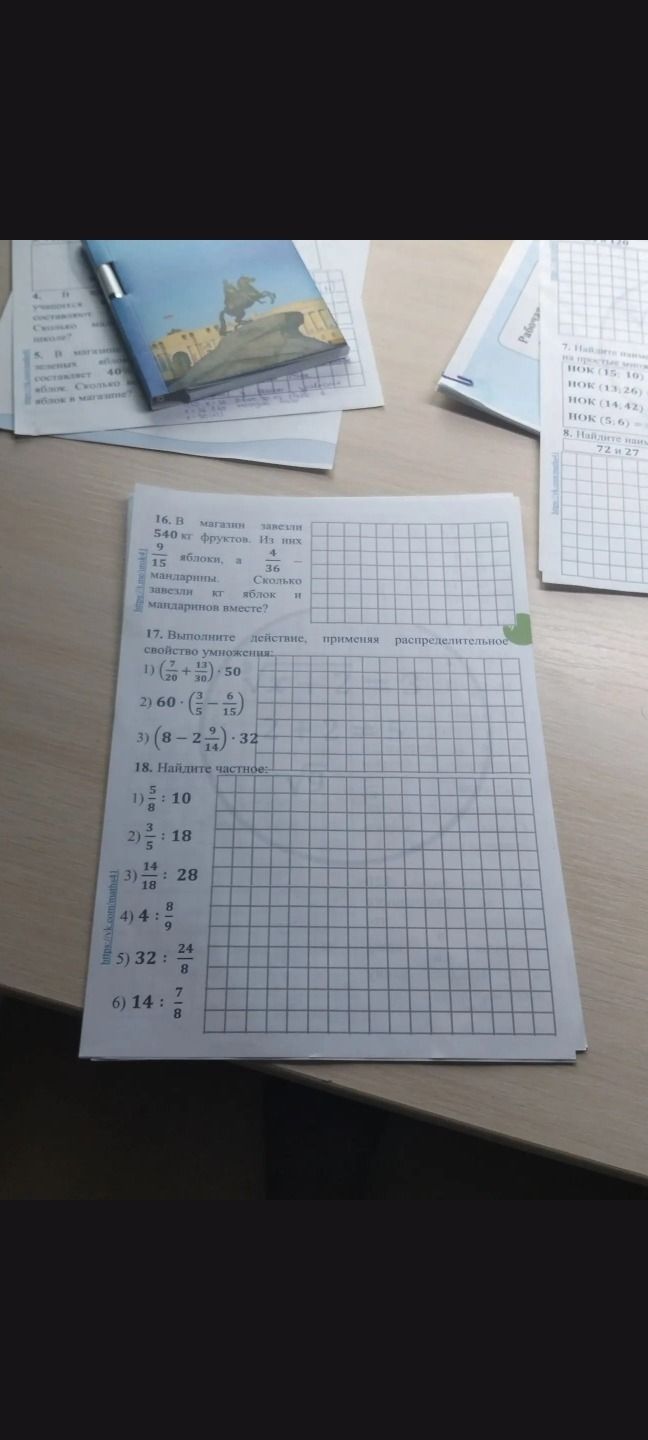 4. В
учащихся
составляют
Сколько
школе?
5. В магазине
зеленых
составляет 40%
яблок. Сколько
яблок в магазине?
7. Найдите
на простые
НОК (15; 10)
НОК (13; 26)
НОК (14; 42)
НОК (5; 6) =
8. Найдите
72 и 27
16. В магазин завезли
540 кг фруктов. Из них
9/15 яблоки, а 4/36 –
мандарины. Сколько
завезли кг яблок и
мандаринов вместе?
17. Выполните действие, применяя распределительное
свойство умножения:
1) (7/20 + 13/30) · 50
2) 60 · (3/5 − 6/15)
3) (8 − 2 9/14) · 32
18. Найдите частное:
1) 5/8 : 10
2) 3/5 : 18
3) 14/18 : 28
4) 4 : 8/9
5) 32 : 24/8
6) 14 : 7/8